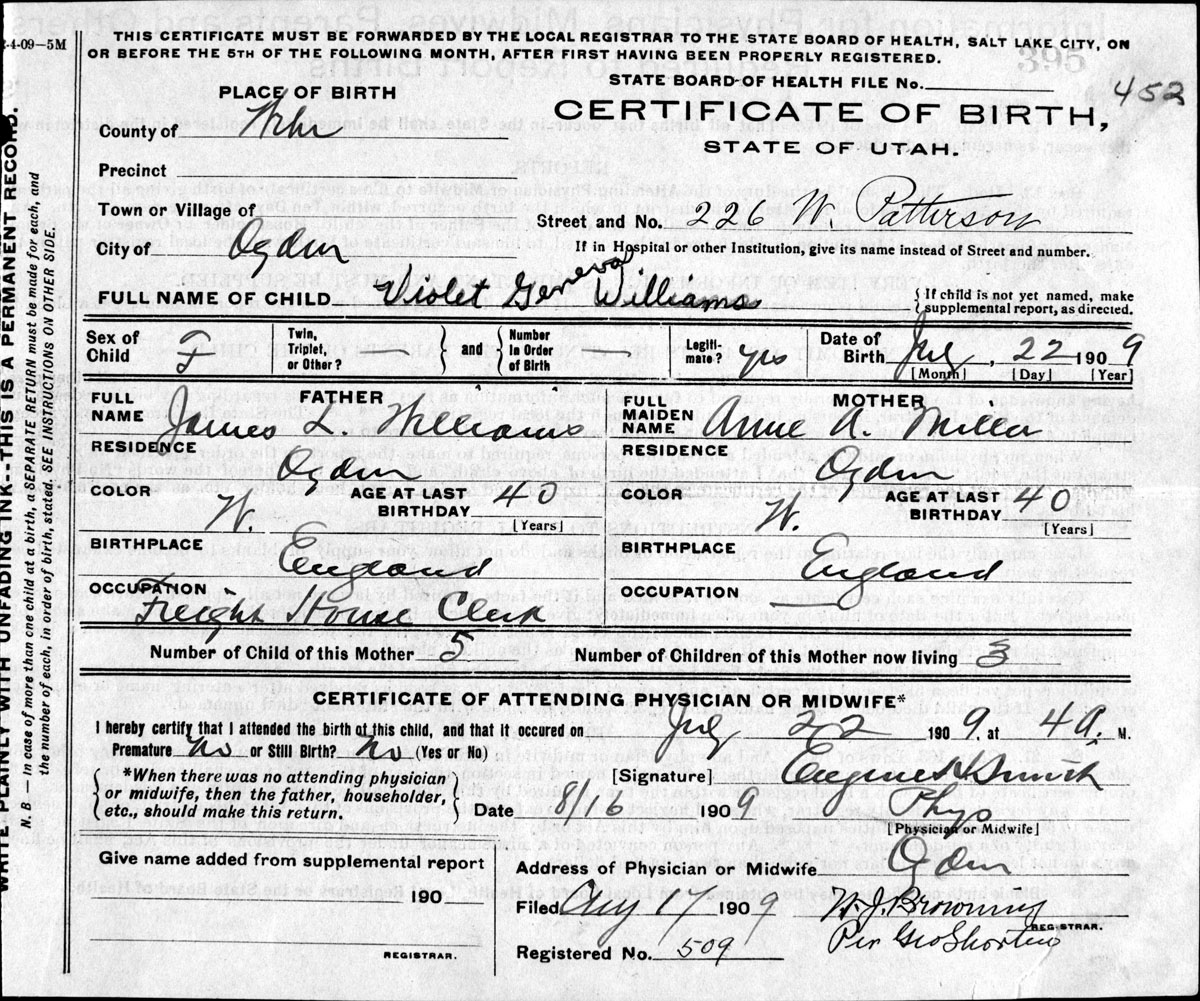 2-4-09—5M
THIS CERTIFICATE MUST BE FORWARDED BY THE LOCAL REGISTRAR TO THE STATE BOARD OF HEALTH, SALT LAKE CITY, ON
OR BEFORE THE 5TH OF THE FOLLOWING MONTH, AFTER FIRST HAVING BEEN PROPERLY REGISTERED.
395
STATE BOARD OF HEALTH FILE No.
452
PLACE OF BIRTH
CERTIFICATE OF BIRTH,
STATE OF UTAH.
County of
Precinct
Town or Village of
Street and No. 226 W. Patterson
City of Ogden
If in Hospital or other Institution, give its name instead of Street and number.
FULL NAME OF CHILD Violet Geneva Williams
{ If child is not yet named, make
supplemental report, as directed.
Sex of Child F
Twin, Triplet, or Other? } and { Number in Order of Birth
Legiti-mate? yes
Date of Birth July, 22 1909
[Month] [Day] [Year]
FULL NAME FATHER James L. Williams
FULL MAIDEN NAME MOTHER Annie A. Miller
RESIDENCE Ogden
RESIDENCE Ogden
COLOR W. AGE AT LAST BIRTHDAY 40 [Years]
COLOR W. AGE AT LAST BIRTHDAY 40 [Years]
BIRTHPLACE England
BIRTHPLACE England
OCCUPATION Freight House Clerk
OCCUPATION
Number of Child of this Mother 5 Number of Children of this Mother now living 3
CERTIFICATE OF ATTENDING PHYSICIAN OR MIDWIFE*
I hereby certify that I attended the birth of this child, and that it occured on July 22 1909. at 4 A. M.
Premature? No or Still Birth? No (Yes or No)
{ *When there was no attending physician
or midwife, then the father, householder,
etc., should make this return. }
[Signature] Eugene
Date 8/16 1909 Phys
[Physician or Midwife]
Give name added from supplemental report
Address of Physician or Midwife Ogden
190
Filed Aug 17 1909 W. J. Browning
REGISTRAR.
Per Geo Shorten
REGISTRAR.
Registered No. 509
WRITE PLAINLY WITH UNFADING INK--THIS IS A PERMANENT RECORD.
N. B. — In case of more than one child at a birth, a SEPARATE RETURN must be made for each, and
the number of each, in order of birth, stated. SEE INSTRUCTIONS ON OTHER SIDE.